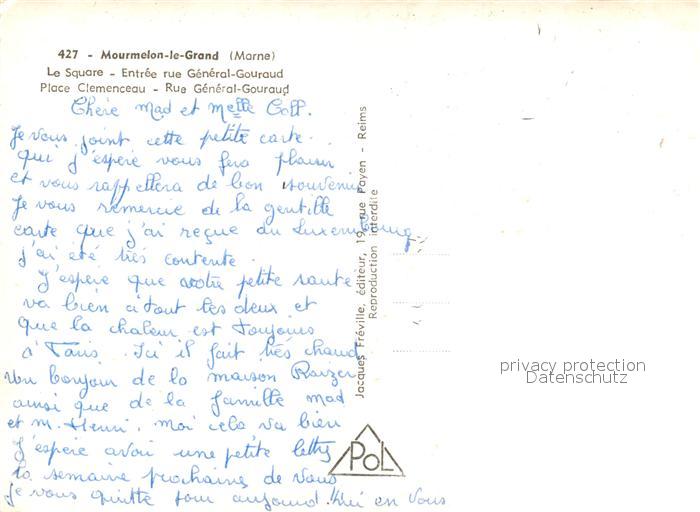 427 - Mourmelon-le-Grand (Marne)
Le Square - Entrée rue Général-Gouraud
Place Clemenceau - Rue Général-Gouraud
Chère Mad et Melle Coll.
Je vous joint cette petite carte.
qui j'espère vous fera plaisir
et vous rappellera de bon souvenir
Je vous remercie de la gentille
carte que j'ai reçue du Luxembourg
j'ai été très contente.
J'espère que votre petite santé
va bien à tout les deux et
que la chaleur est toujours
à Paris. Ici il fait très chaud
Un bonjour de la maison Roizer
ainsi que de la famille Mad
et M. Henri. moi cela va bien
J'espère avoir une petite lettre
la semaine prochaines de vous
Je vous quitte pour aujourd'hui en vous
Jacques Fréville, éditeur, 19, rue Payen - Reims
Reproduction interdite
POL
privacy protection
Datenschutz